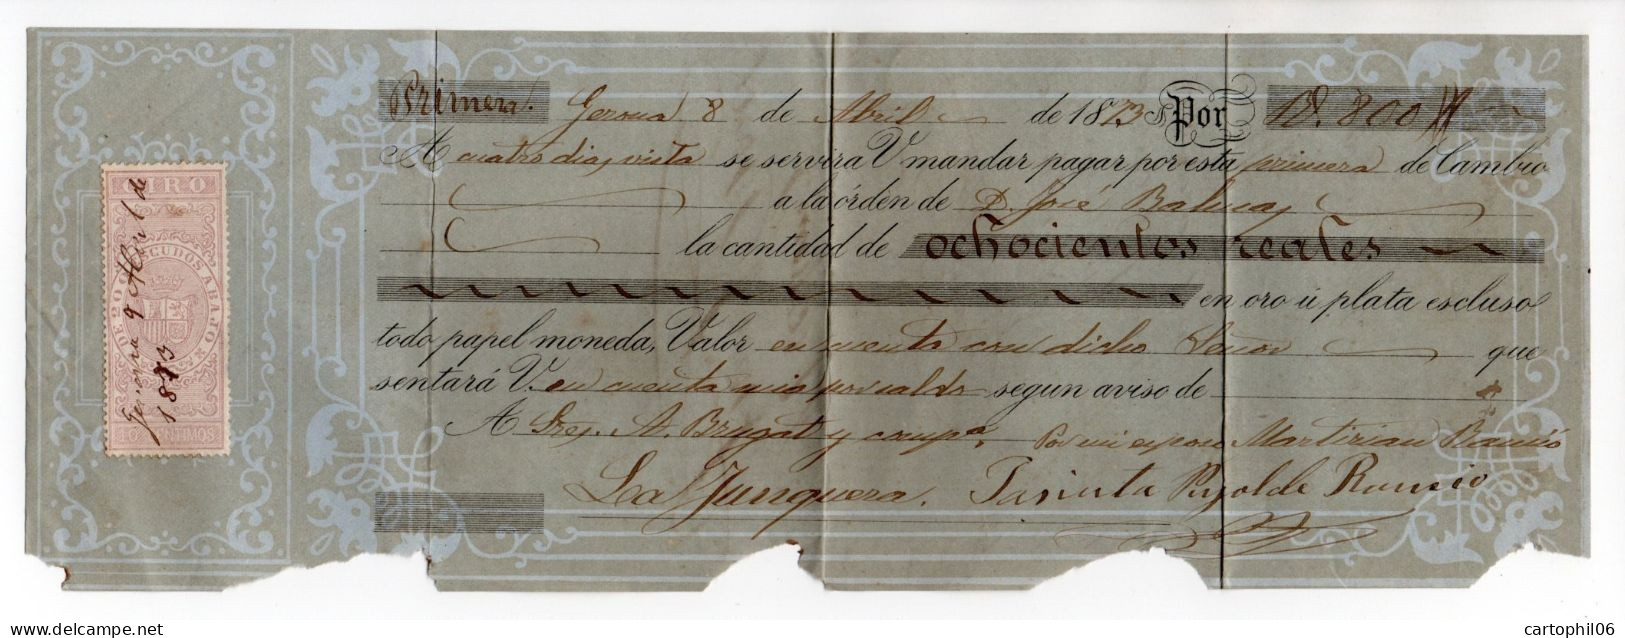 Primera. Gerona 8 de Abril de 1873 Por 800
A cuatro dias vista se servirá V. mandar pagar por esta primera de Cambio
a la órden de D. José
la cantidad de ochocientos reales
en oro ú plata escluso
todo papel moneda, Valor en cuenta con dicho Señor que
sentará V. en cuenta segun aviso de
A Sres. A. Brugat y compa. Por mi esposo Martirian
La Junquera. de
GIRO
DE 200 ESCUDOS ABAJO
10 CENTIMOS
Gerona 9 Abril de
1873
cartophil06